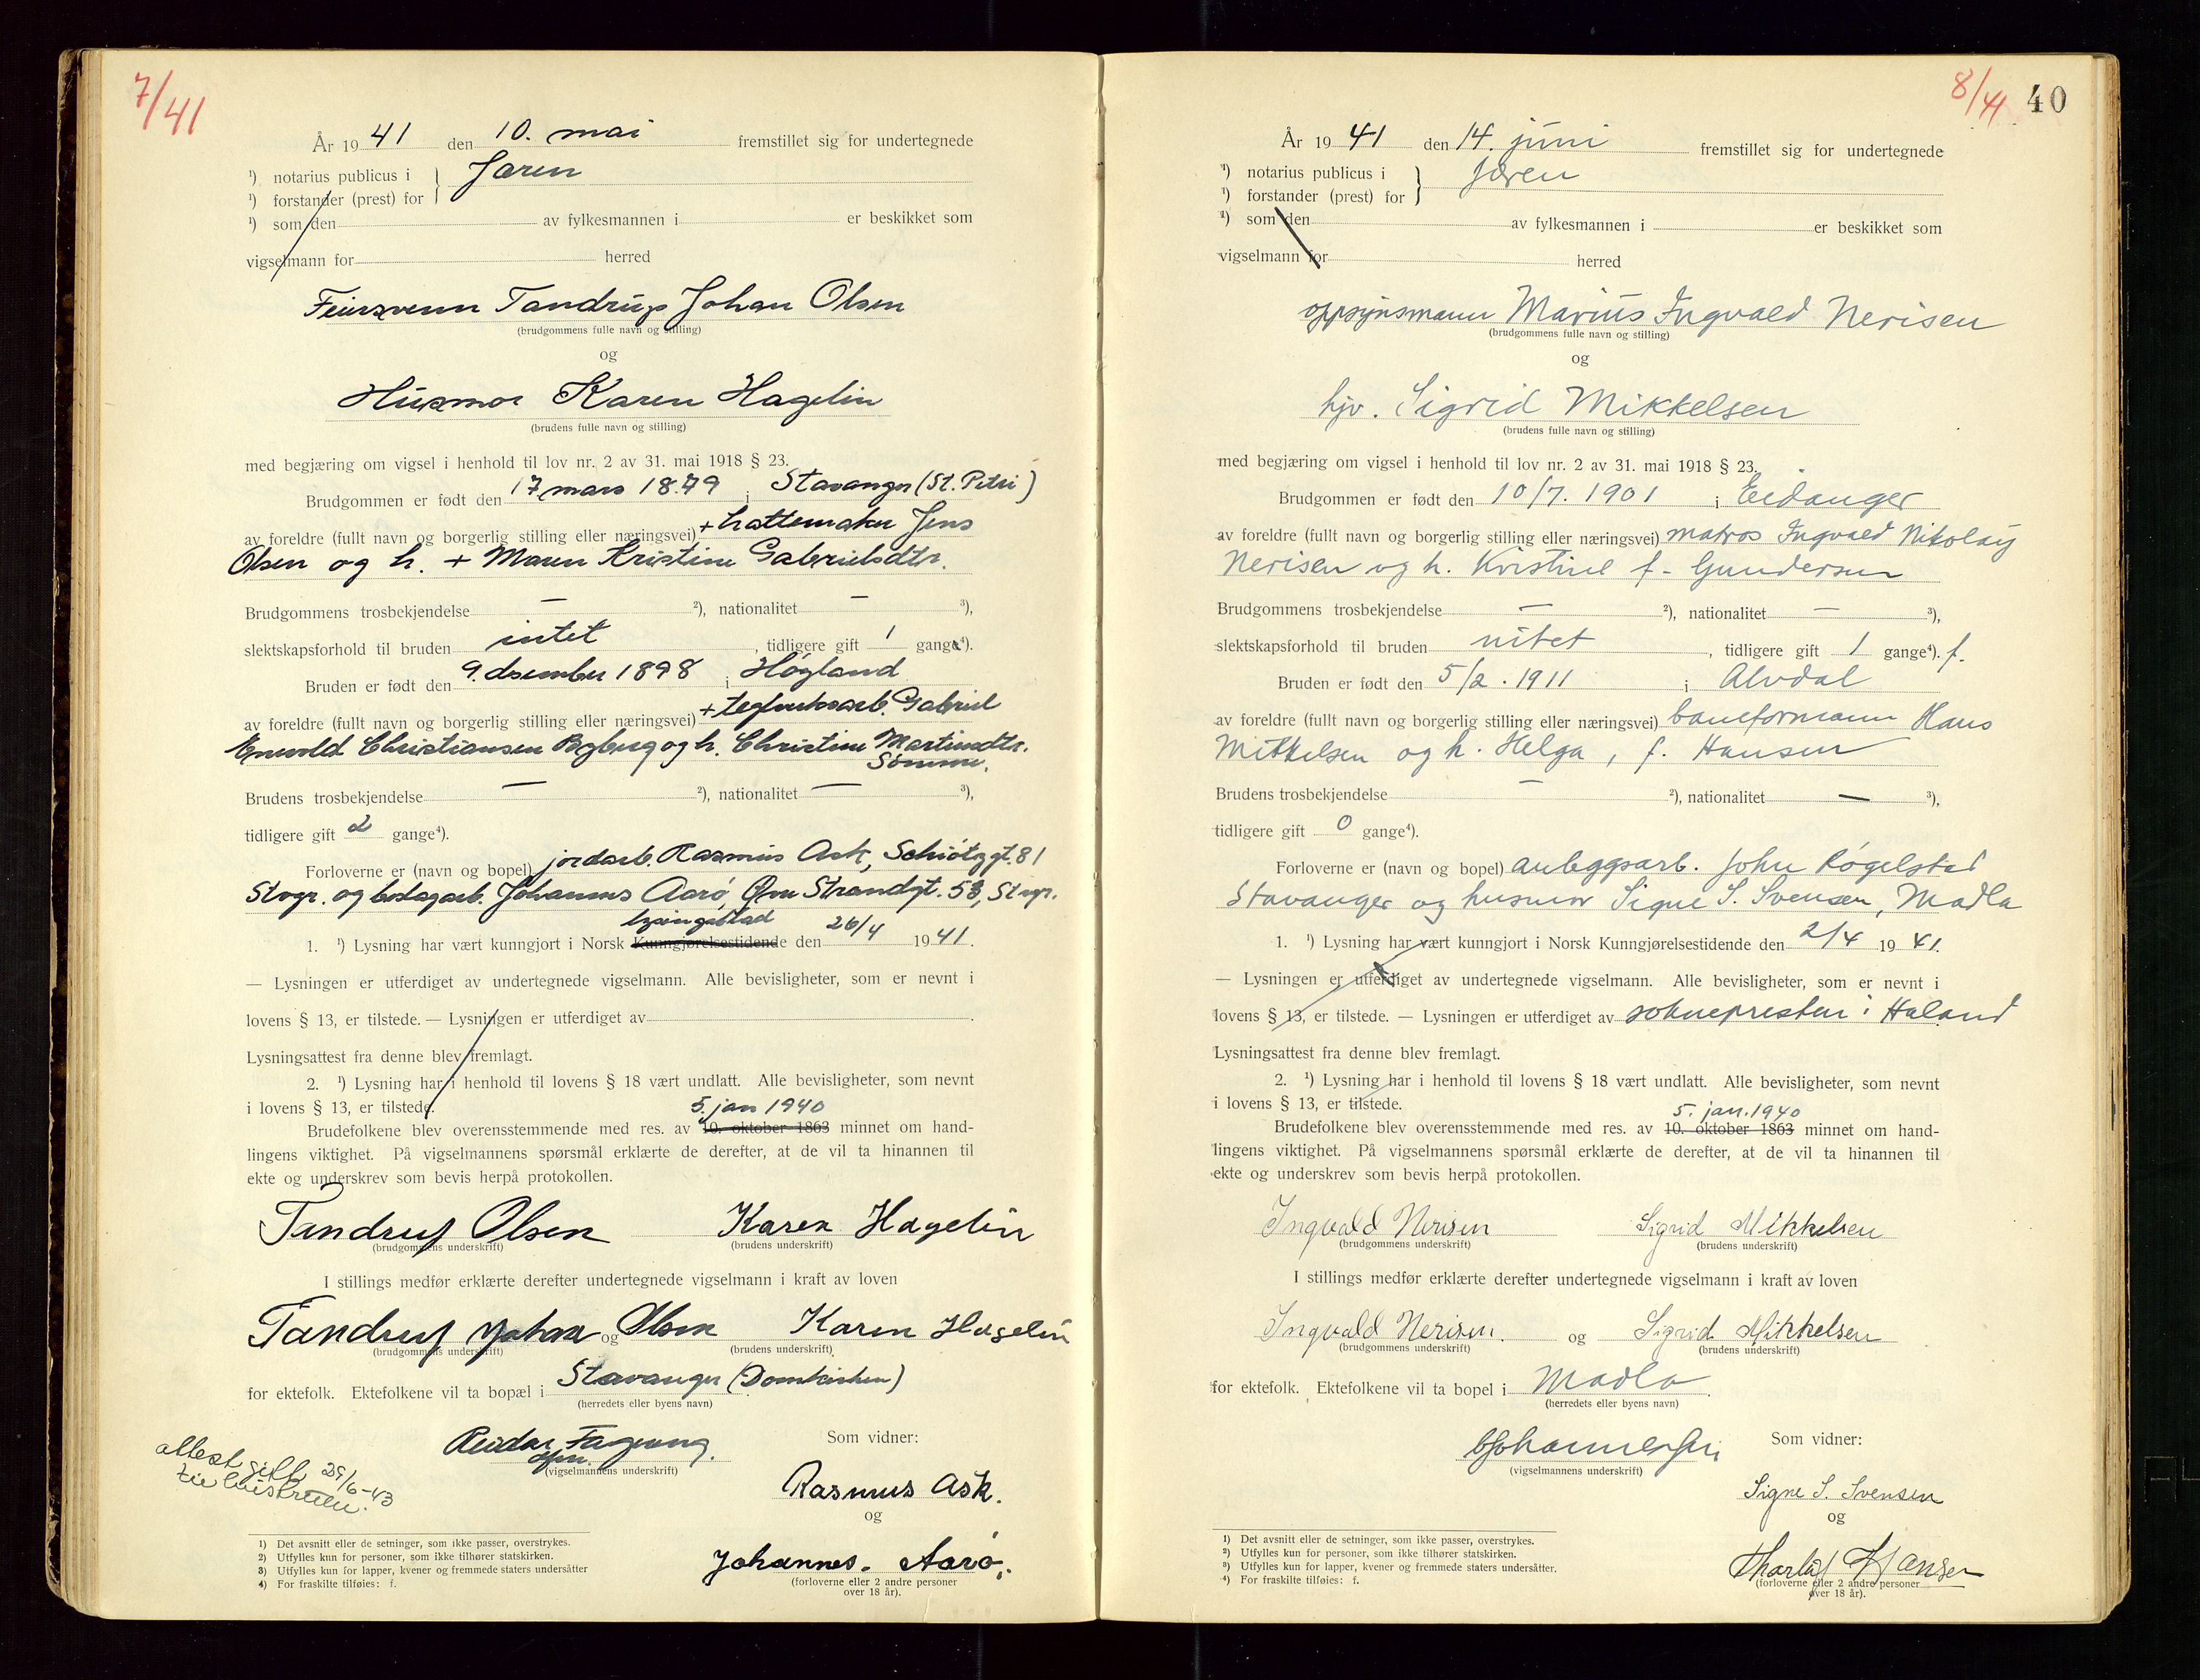 7/41
År 1941 den 10. mai fremstillet sig for undertegnede
¹) notarius publicus i } Jæren
¹) forstander (prest) for
¹) som den av fylkesmannen i er beskikket som
vigselmann for herred
Feiersvenn Tandrup Johan Olsen
(brudgommens fulle navn og stilling)
og
Husmor Karen Hagelin
(brudens fulle navn og stilling)
med begjæring om vigsel i henhold til lov nr. 2 av 31. mai 1918 § 23.
Brudgommen er født den 17 mars 1879 i Stavanger (St. Petri)
av foreldre (fullt navn og borgerlig stilling eller næringsvei) + hattemaker Jens
Olsen og h. + Maren Kristine Gabrielsdtr.
Brudgommens trosbekjendelse — ²), nationalitet — ³),
slektskapsforhold til bruden intet, tidligere gift 1 gange⁴).
Bruden er født den 9. desember 1898 i Høgland
av foreldre (fullt navn og borgerlig stilling eller næringsvei) + teglverksarb. Gabriel
Enevold Christiansen Byberg og h. Christine Martinsdtr.
Sømme.
Brudens trosbekjendelse — ²), nationalitet — ³),
tidligere gift 2 gange⁴).
Forloverne er (navn og bopel) jordarb. Rasmus Ask, Schiøtzgt. 81
Stvgr. og bolagarb. Johannes Aarø, Øvre Strandgt. 58, Stvgr.
lysingsblad
1. ¹) Lysning har vært kunngjort i Norsk Kunngjørelsestidende den 26/4 1941.
— Lysningen er utferdiget av undertegnede vigselmann. Alle bevisligheter, som er nevnt i
lovens § 13, er tilstede. — Lysningen er utferdiget av
Lysningsattest fra denne blev fremlagt.
2. ¹) Lysning har i henhold til lovens § 18 vært undlatt. Alle bevisligheter, som nevnt
i lovens § 13, er tilstede.
5. jan 1940
Brudefolkene blev overensstemmende med res. av 10. oktober 1863 minnet om hand-
lingens viktighet. På vigselmannens spørsmål erklærte de derefter, at de vil ta hinannen til
ekte og underskrev som bevis herpå protokollen.
Tandrup Olsen Karen Hagelin
(brudgommens underskrift) (brudens underskrift)
I stillings medfør erklærte derefter undertegnede vigselmann i kraft av loven
Tandrup Johan Olsen og Karen Hagelin
(brudgommens underskrift) (brudens underskrift)
for ektefolk. Ektefolkene vil ta bopæl i Stavanger (Domkirken)
(herredets eller byens navn)
Reidar Fagerang
dfm.
(vigselmannens underskrift)
Som vidner:
Rasmus Ask.
og
Johannes. Aarø.
(forloverne eller 2 andre personer
over 18 år).
attest gitt 29/6-43
til hustruen.
1) Det avsnitt eller de setninger, som ikke passer, overstrykes.
2) Utfylles kun for personer, som ikke tilhører statskirken.
3) Utfylles kun for lapper, kvener og fremmede staters undersåtter
4) For fraskilte tilføies: f.
8/41 40
År 1941 den 14. juni fremstillet sig for undertegnede
¹) notarius publicus i } Jæren
¹) forstander (prest) for
¹) som den av fylkesmannen i er beskikket som
vigselmann for herred
oppsynsmann Marius Ingvald Nerisen
(brudgommens fulle navn og stilling)
og
hjv. Sigrid Mikkelsen
(brudens fulle navn og stilling)
med begjæring om vigsel i henhold til lov nr. 2 av 31. mai 1918 § 23.
Brudgommen er født den 10/7. 1901 i Eidanger
av foreldre (fullt navn og borgerlig stilling eller næringsvei) matros Ingvald Nikolay
Nerisen og h. Kristine f. Gundersen
Brudgommens trosbekjendelse — ²), nationalitet — ³),
slektskapsforhold til bruden intet, tidligere gift 1 gange⁴). f.
Bruden er født den 5/2. 1911 i Alvdal
av foreldre (fullt navn og borgerlig stilling eller næringsvei) baneformann Hans
Mikkelsen og h. Helga, f. Hansen
Brudens trosbekjendelse — ²), nationalitet — ³),
tidligere gift 0 gange⁴).
Forloverne er (navn og bopel) anleggsarb. John Røgelstad
Stavanger og husmor Signe S. Svensen, Madla
1. ¹) Lysning har vært kunngjort i Norsk Kunngjørelsestidende den 2/4 1941.
— Lysningen er utferdiget av undertegnede vigselmann. Alle bevisligheter, som er nevnt i
lovens § 13, er tilstede. — Lysningen er utferdiget av soknepresten i Håland
Lysningsattest fra denne blev fremlagt.
2. ¹) Lysning har i henhold til lovens § 18 vært undlatt. Alle bevisligheter, som nevnt
i lovens § 13, er tilstede.
5. jan. 1940
Brudefolkene blev overensstemmende med res. av 10. oktober 1863 minnet om hand-
lingens viktighet. På vigselmannens spørsmål erklærte de derefter, at de vil ta hinannen til
ekte og underskrev som bevis herpå protokollen.
Ingvald Nerisen Sigrid Mikkelsen
(brudgommens underskrift) (brudens underskrift)
I stillings medfør erklærte derefter undertegnede vigselmann i kraft av loven
Ingvald Nerisen. og Sigrid Mikkelsen
(brudgommens underskrift) (brudens underskrift)
for ektefolk. Ektefolkene vil ta bopel i Madla.
(herredets eller byens navn)
(vigselmannens underskrift)
Som vidner:
Signe S. Svensen
og
Thorleif Hansen
(forloverne eller 2 andre personer
over 18 år).
1) Det avsnitt eller de setninger, som ikke passer, overstrykes.
2) Utfylles kun for personer, som ikke tilhører statskirken.
3) Utfylles kun for lapper, kvener og fremmede staters undersåtter.
4) For fraskilte tilføies: f.